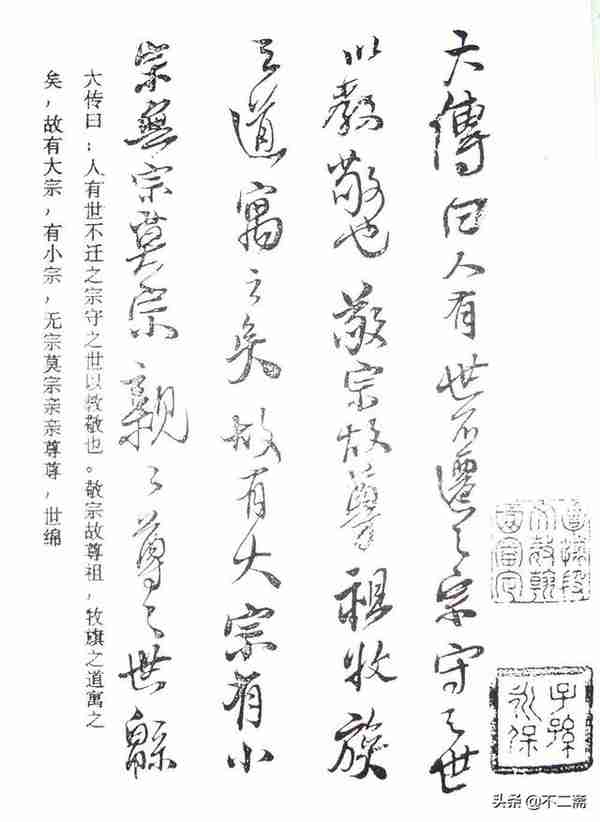 大傳曰人有世不遷之宗守之世
以教敬也敬宗故尊祖收族
之道寓之矣故有大宗有小
宗無宗莫宗親々尊々世緜
大传曰：人有世不迁之宗守之世以教敬也。敬宗故尊祖，牧旗之道寓之
矣，故有大宗，有小宗，无宗莫宗亲亲尊尊，世绵
子孫
永保
头条 @不二斋